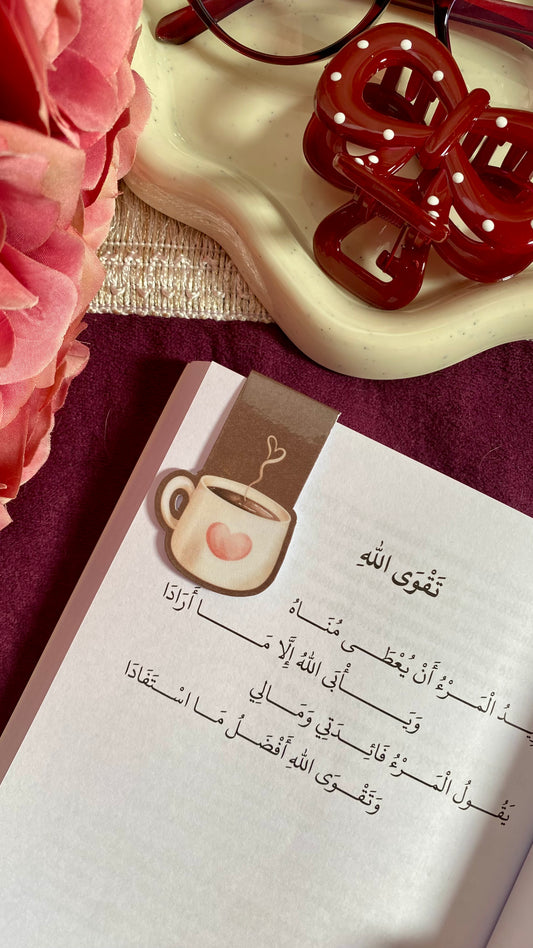 تَقْوَى اللهِ
ـيدُ الْمَـرْءُ أَنْ يُعْطَـى مُنَـاهُ
وَيَـــأْبَى اللهُ إِلَّا مَـــا أَرَادَا
يَقُـولُ الْمَـرْءُ فَائِـدَتِي وَمَـالِي
وَتَقْـوَى اللهِ أَفْضَـلُ مَـا اسْـتَفَادَا